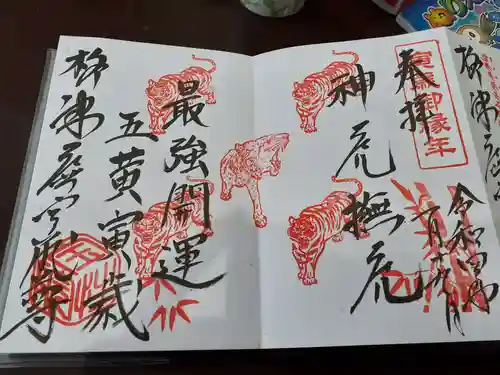 柳津虚空
奉拝
寅歳御縁年
令和四年
神虎撫虎
最強開運
五黄寅歳
柳津虚空蔵尊